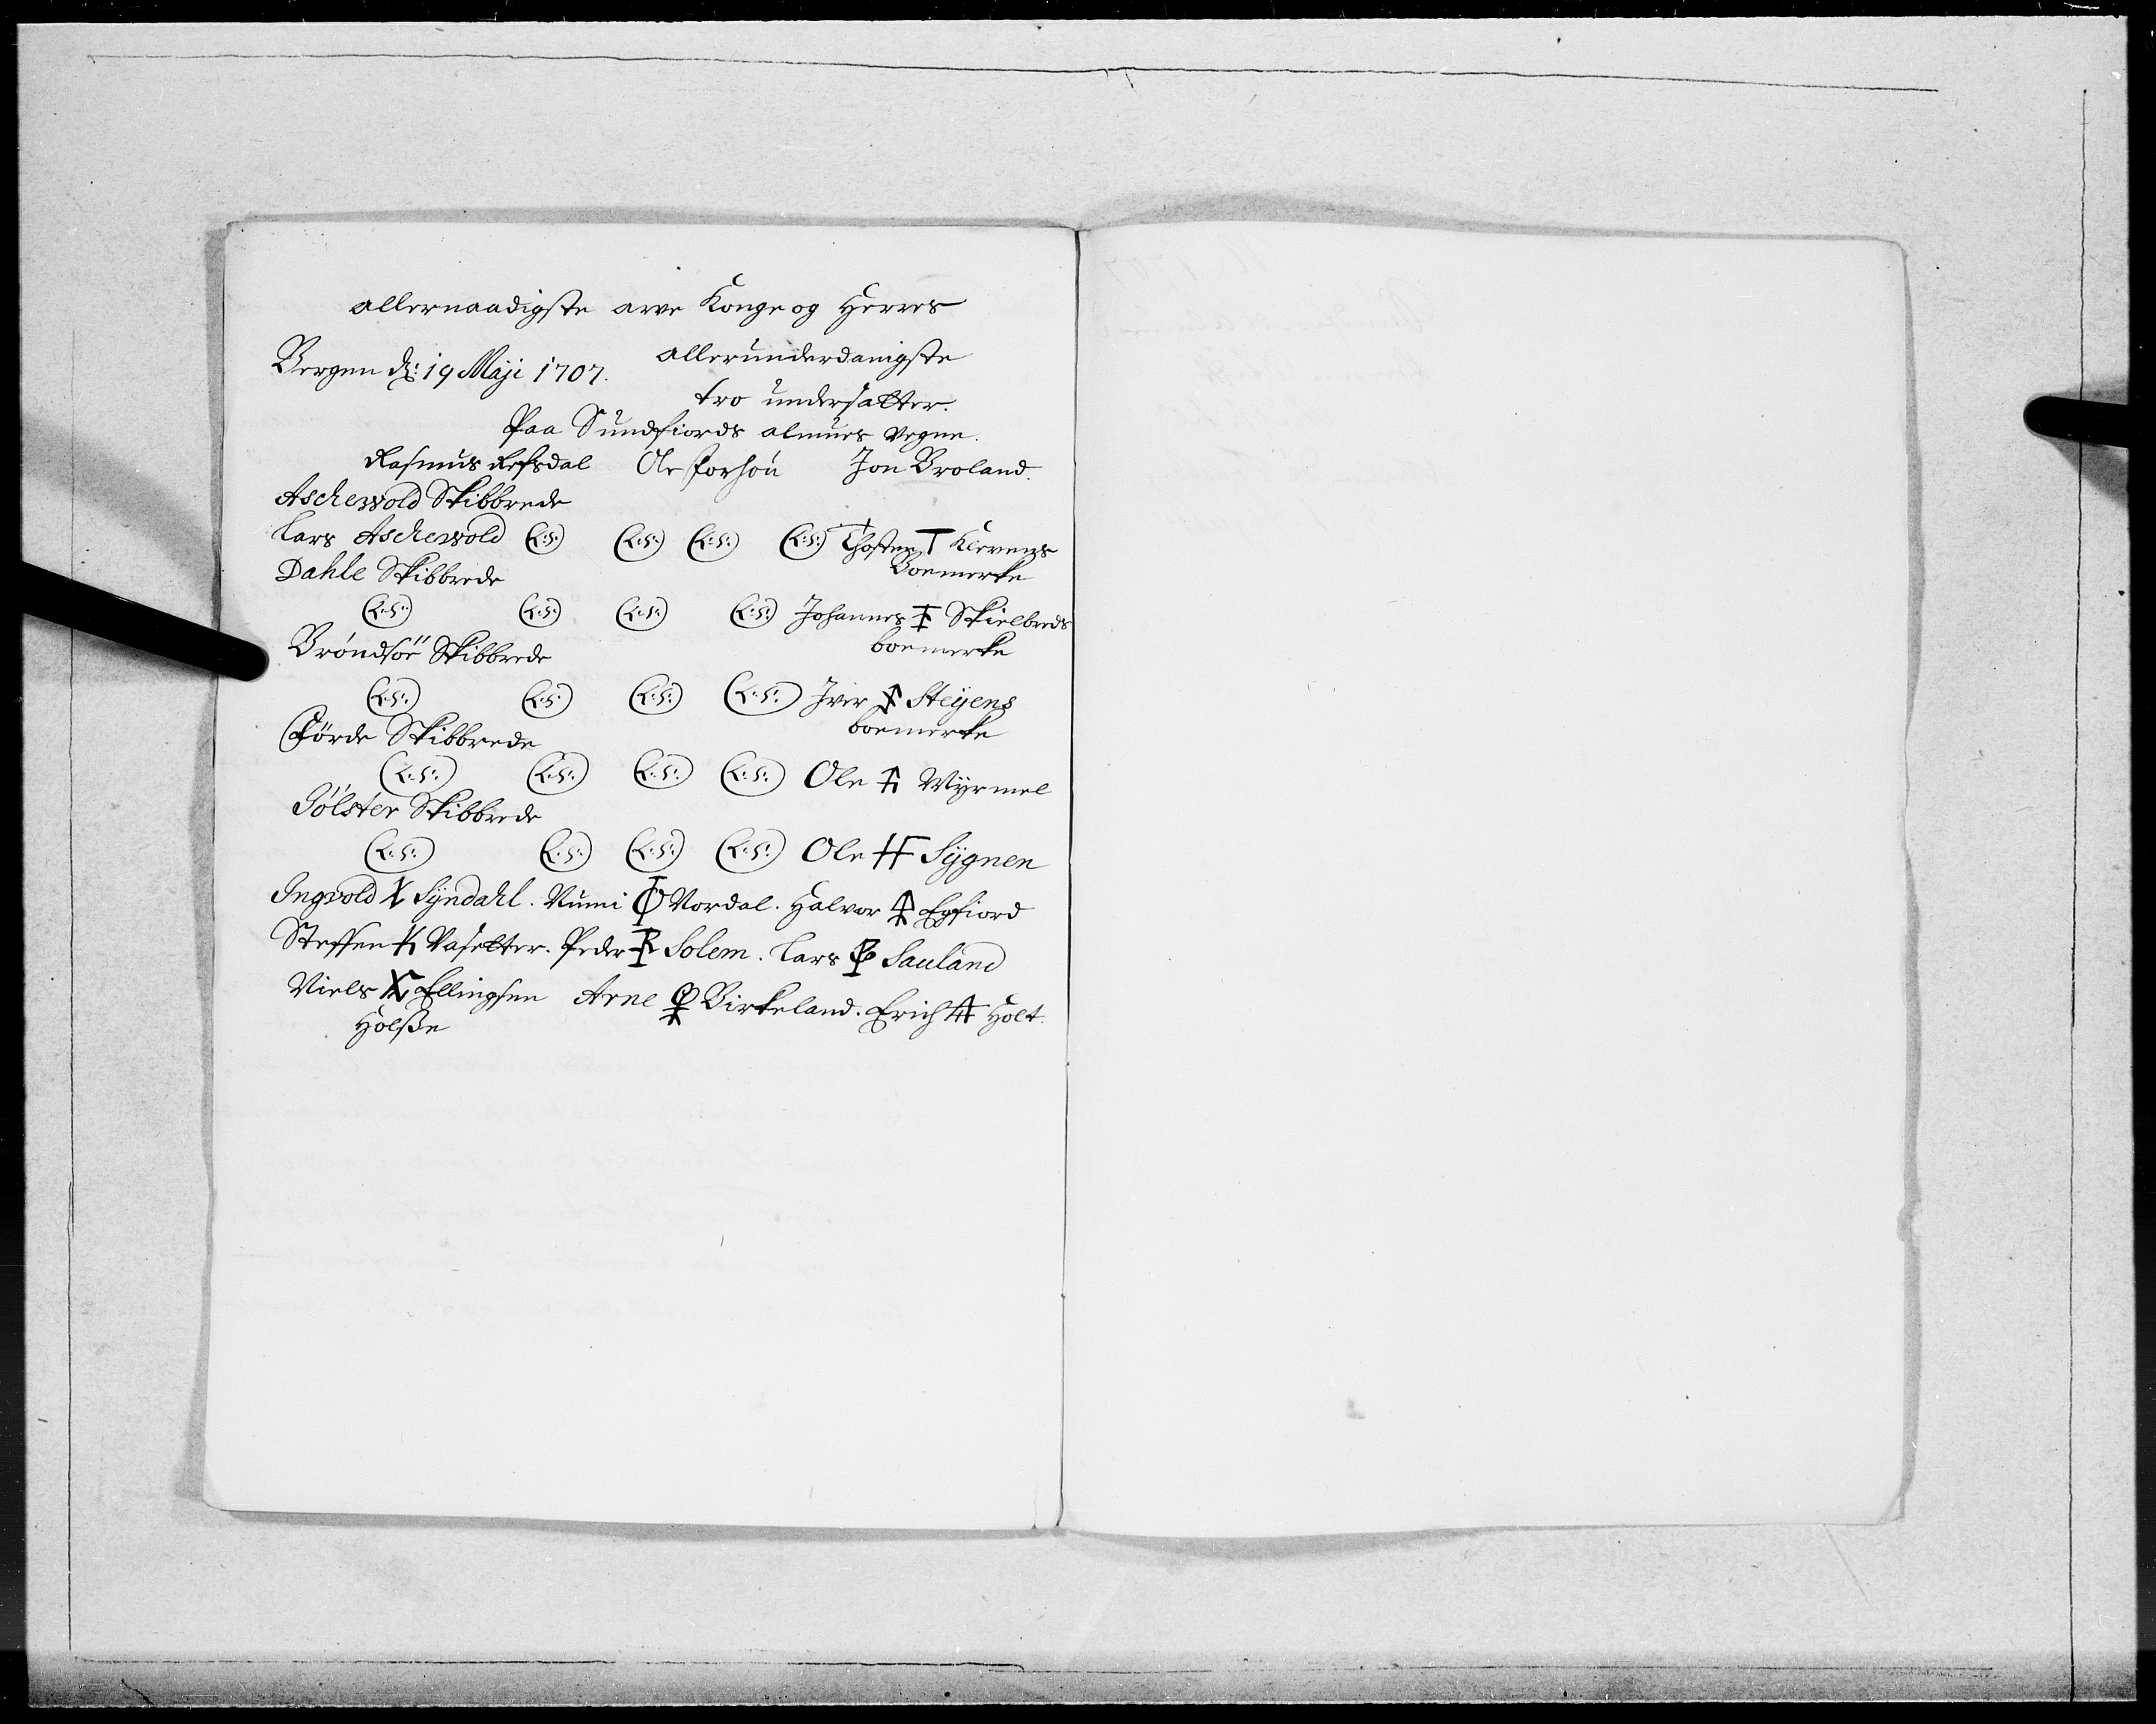 allernaadigste arve Konge og Herres
Bergen d: 19 Maji 1707. allerunderdanigste
tro undersatter.
Paa Sundfiords almues vegne.
Rasmus Refsdal Ole Porhøu Jon Broland.
Aschevold Skibbrede
Lars Aschevold (L:S:) (L:S:) (L:S:) (L:S:) T Klevens
Boemerke
Dahle Skibbrede
(L:S:) (L:S:) (L:S:) (L:S:) Johannes Skielbreds
boemerke
Brøndsöe Skibbrede
(L:S:) (L:S:) (L:S:) (L:S:) Iver Steyens
boemerke
Førde Skibbrede
(L:S:) (L:S:) (L:S:) (L:S:) Ole Myrmel
Jølster Skibbrede
(L:S:) (L:S:) (L:S:) (L:S:) Ole Sygnen
Ingvold Syndahl. Nummi Nordal. Halvor Egfiord
Steffen Vasetter. Peder Solem. Lars Sauland
Niels Ellingsen Arne Birkeland. Erich Holt.
Holsße